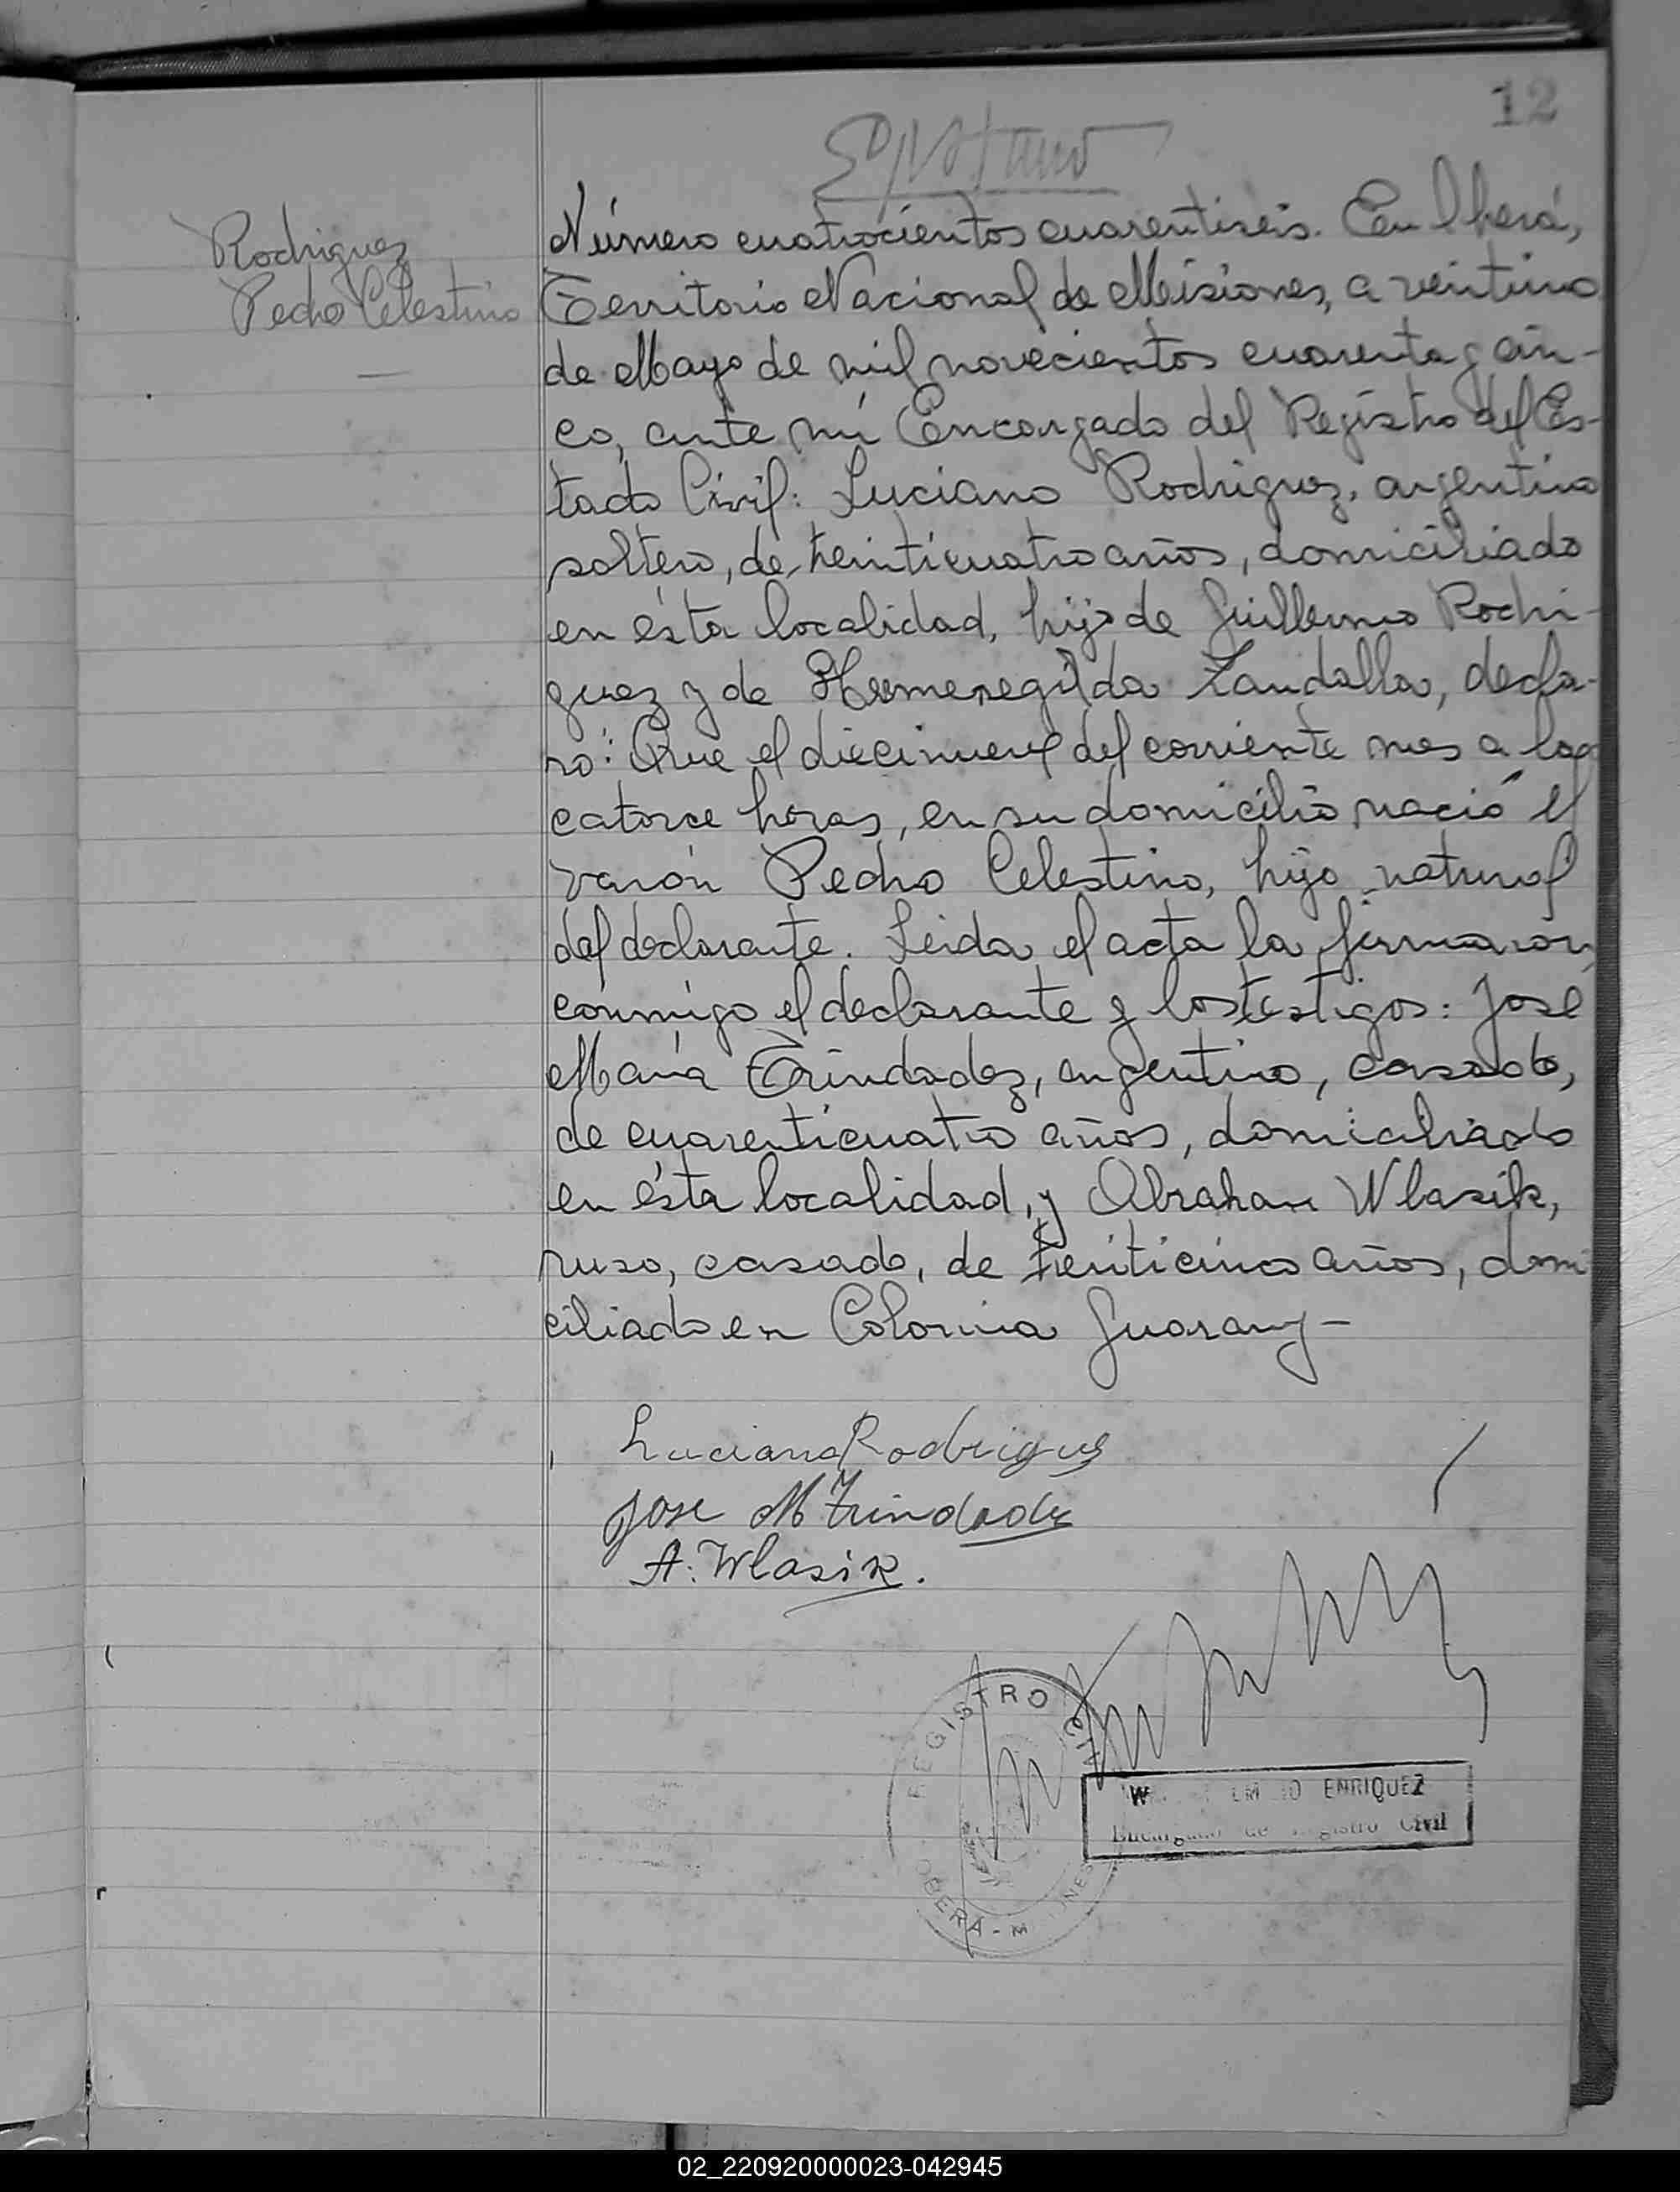 12
Rodriguez
Pedro Celestino
Número cuatrocientos cuarentiseis. En Oberá,
Territorio Nacional de Misiones, a veintiuno
de Mayo de mil novecientos cuarenta y cin-
co, ante mi Encargado del Registro del Es-
tado Civil: Luciano Rodriguez, argentino
soltero, de treinticuatro años, domiciliado
en ésta localidad, hijo de Guillermo Rodri-
guez y de Hermenegilda Zandalla, decla-
ró: Que el diecinueve del corriente mes a las
catorce horas, en su domicilio nació el
varón Pedro Celestino, hijo natural
del declarante. Leida el acta la firmaron
conmigo el declarante y los testigos: José
María Trindadez, argentino, casado,
de cuarenticuatro años, domiciliado
en ésta localidad, y Abraham Wlasik,
ruso, casado, de treinticinco años, domi
ciliado en Colonia Guarany-
Luciano Rodrigues
Jose M Trindade
A. Wlasik.
REGISTRO CIV
OBERA - M IONES
W EM IO ENRIQUEZ
Encargado de Registro Civil
02_220920000023-042945